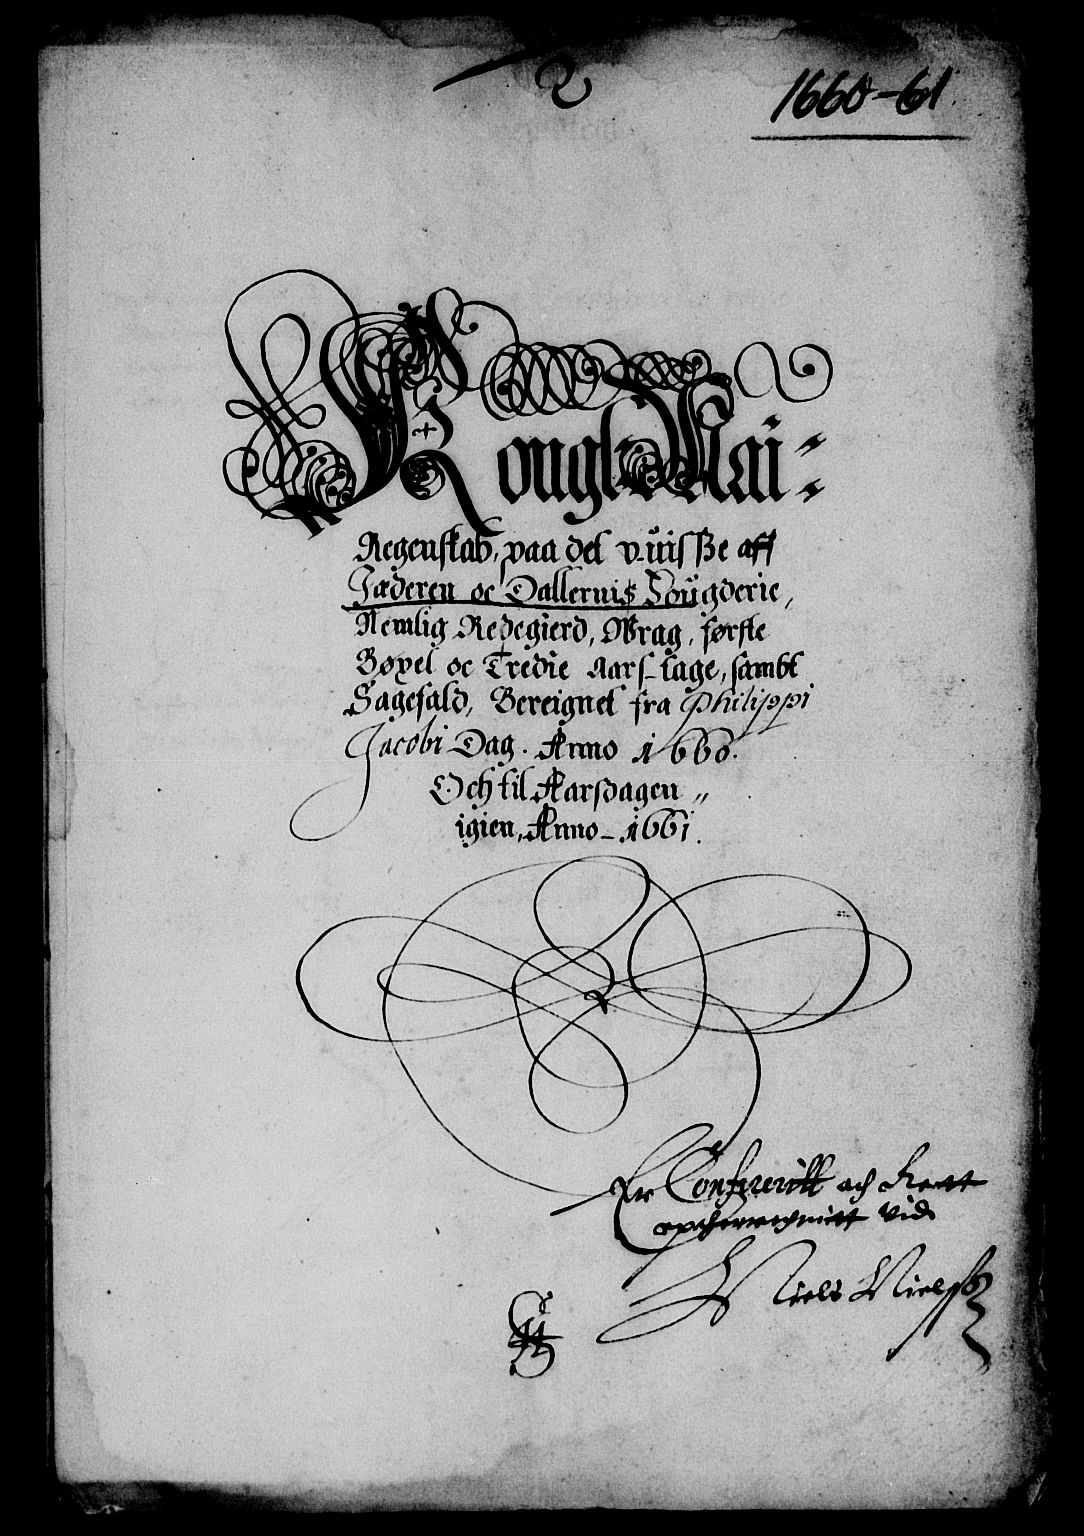 2
1660-61
Kongl: Mai:
Regenskab, paa det uvisße aff
Jæderen oc Dallernis Fougderie,
Nemlig Redegierd, Wrag, første
Bøxel oc Tredie Aars tage, sambt
Sagefald, Bereignet fra Philippi
Jacobi Dag. Anno 1660.
Och til Aarsdagen
igien, Anno 1661.
Er och Rett
vid
Niels Nielsß